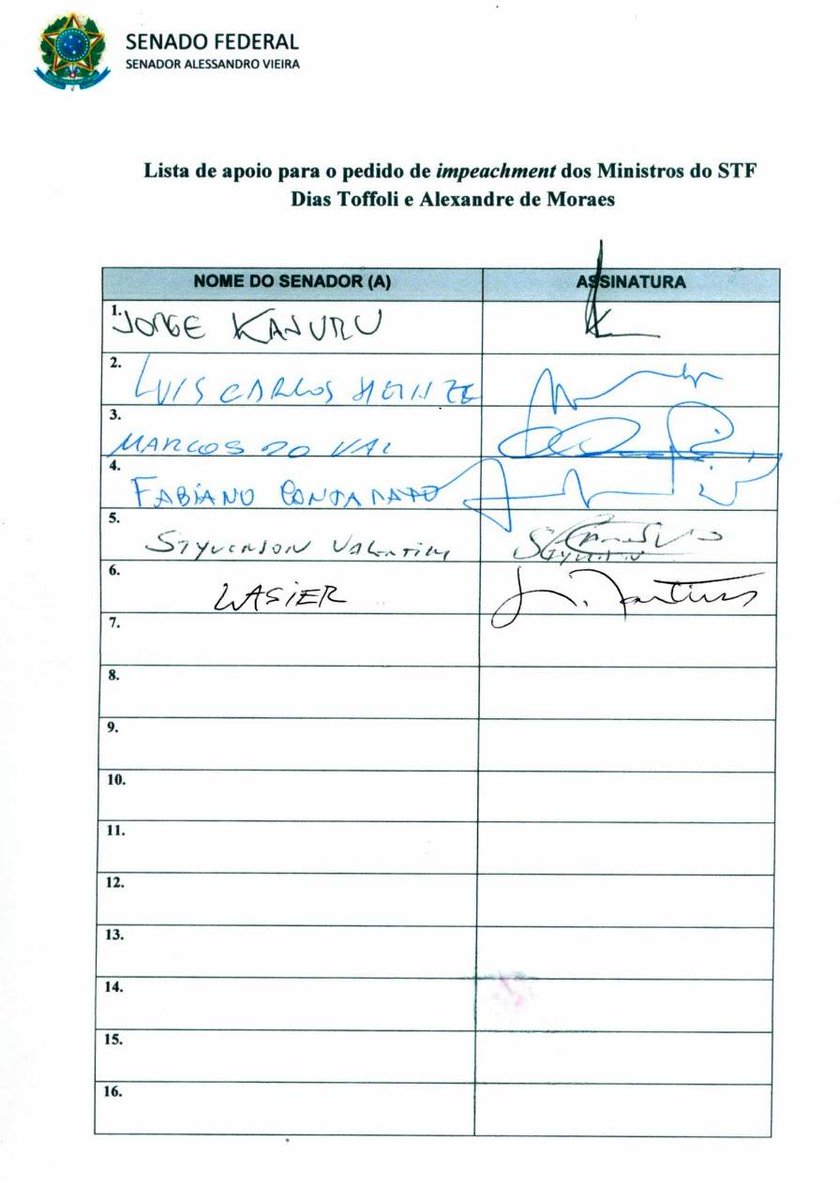 SENADO FEDERAL
SENADOR ALESSANDRO VIEIRA
Lista de apoio para o pedido de impeachment dos Ministros do STF
Dias Toffoli e Alexandre de Moraes
NOME DO SENADOR (A) ASSINATURA
1. JORGE KAJURU
2. LUIS CARLOS HEINZE
3. MARCOS DO VAL
4. FABIANO CONTARATO
5. STYVENSON VALENTIM
6. LASIER L. Martins
7.
8.
9.
10.
11.
12.
13.
14.
15.
16.